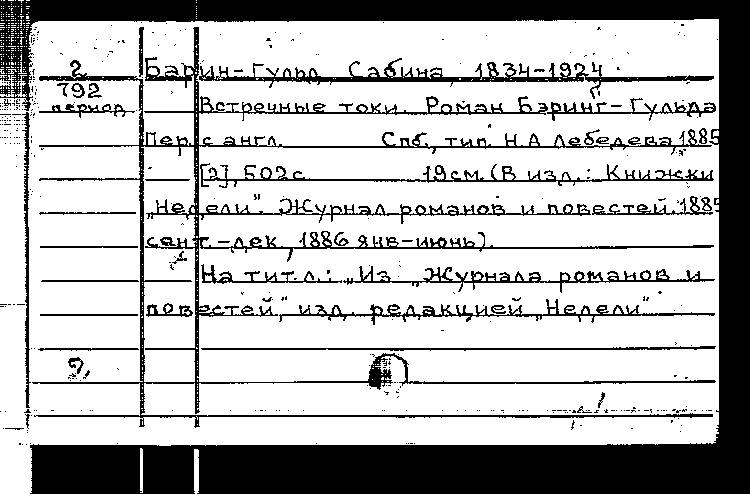 2 Барин-Гульд, Сабина, 1834-1924.
792
период Встречные токи. Роман Бэринг-Гульда
Пер. с англ. Спб., тип. Н.А Лебедева, 1885
[2], 502с 19см. (В изд.: Книжки
„Недели". Журнал романов и повестей. 1885
сент.-дек., 1886 янв-июнь).
На тит.л.: „Из „Журнала романов и
повестей", изд. редакцией „Недели"